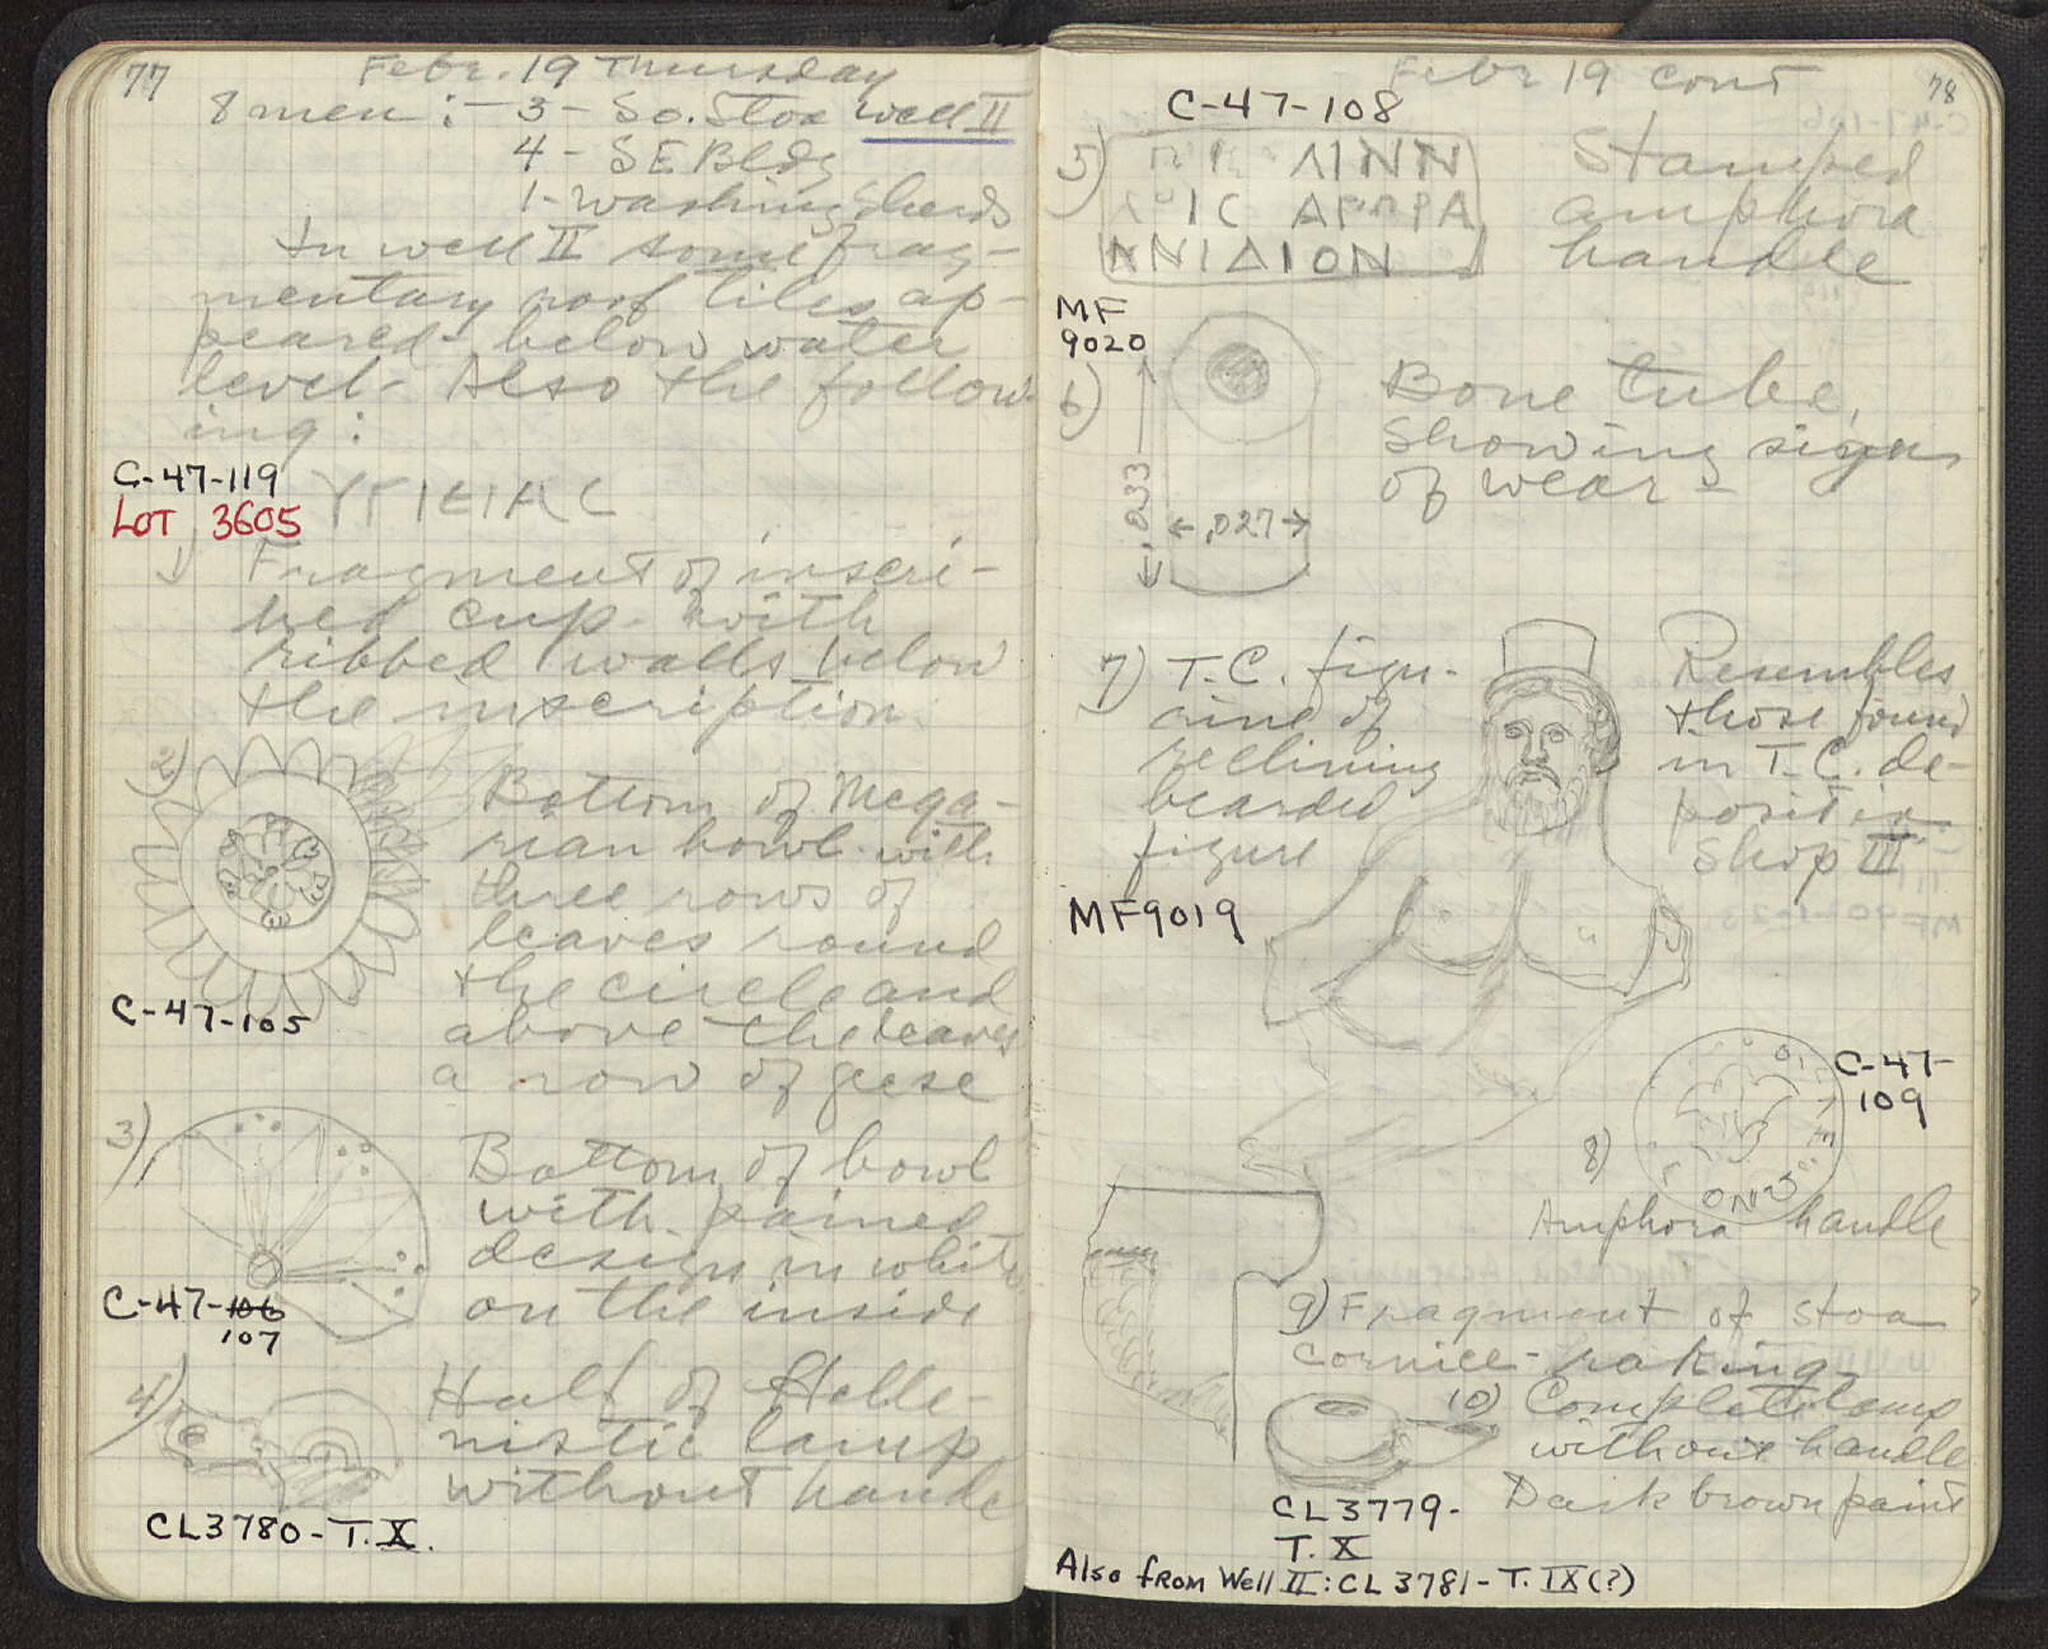 77
Febr. 19 Thursday
8 men :- 3 - So. Stoa Well II
4 - SE Bldg
1 - washing sherds
In well II some frag-
mentary roof tiles ap-
peared - below water
level - Also the follow-
ing :
C-47-119
LOT 3605
1)
Fragment of inscri-
bed cup with
ribbed walls below
the inscription.
2)
Bottom of Mega-
rian bowl with
three rows of
leaves round
the circle and
above the leaves
a row of geese
C-47-105
3)
Bottom of bowl
with pained
design in white
on the inside
C-47-106
107
4)
Half of Helle-
nistic lamp
without handle
CL3780-T.X.
78
Febr 19 cont
C-47-108
5)
ΛΙΝΝ
ΚΝΙΔΙΟΝ
Stamped
amphora
handle
MF
9020
6)
.033
.027
Bone tube,
showing signs
of wear -
7) T.C. figu-
rine of
reclining
bearded
figure
MF9019
Resembles
those found
in T.C. de-
posit in
Shop III
C-47-
109
8)
Amphora handle
9) Fragment of stoa
cornice - raking
10) Complete lamp
without handle
Dark brown paint
CL3779-
T.X
Also from Well II: CL 3781 - T. IX (?)